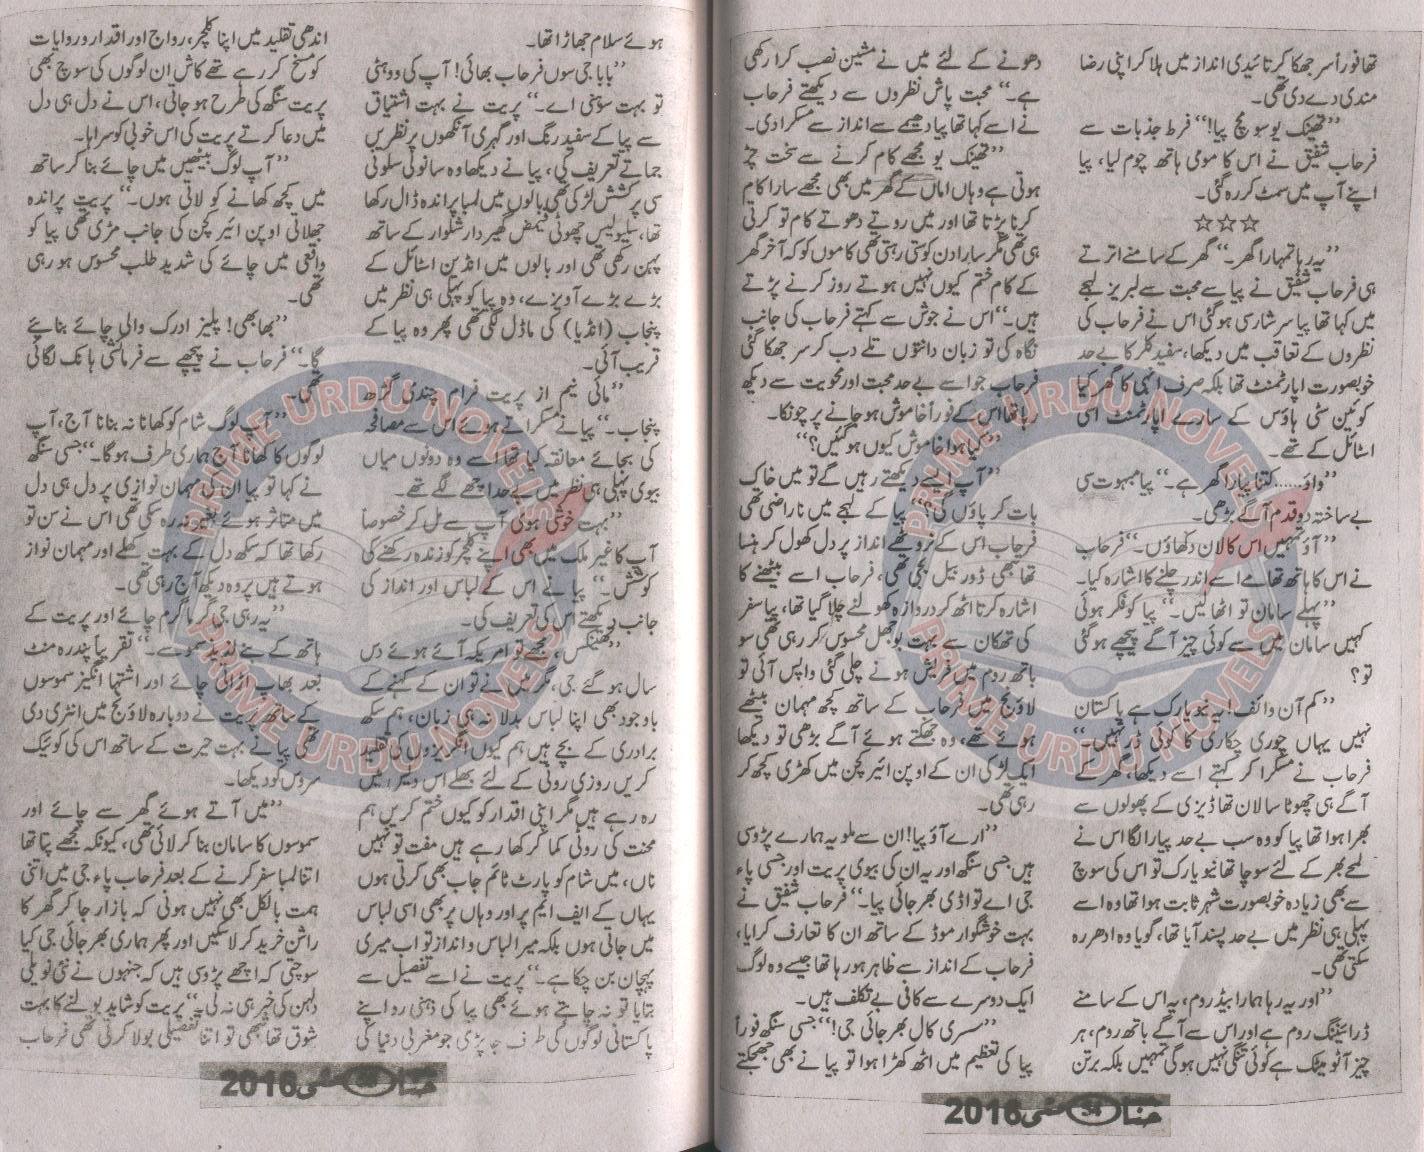 تھا فوراً سر جھکا کر تائیدی انداز میں ہلا کر اپنی رضا
مندی دے دی تھی۔
”تھینک یو سو مچ پیا!“ فرط جذبات سے
فرحاب شفیق نے اس کا مومی ہاتھ چوم لیا، پیا
اپنے آپ میں سمٹ کر رہ گئی۔
☆☆☆
”یہ رہا تمہارا گھر۔“ گھر کے سامنے اترتے
ہی فرحاب شفیق نے پیا سے محبت سے لبریز لہجے
میں کہا تھا پیا سرشار سی ہو گئی اس نے فرحاب کی
نظروں کے تعاقب میں دیکھا، سفید کلر کا بے حد
خوبصورت اپارٹمنٹ تھا بلکہ صرف انہی کا گھر کیا
کوئین سٹی ہاؤس کے سارے اپارٹمنٹ اسی
اسٹائل کے تھے۔
”واؤ......کتنا پیارا گھر ہے۔“ پیا مبہوت سی
بے ساختہ دو قدم آگے بڑھی۔
”آؤ تمہیں اس کا لان دکھاؤں۔“ فرحاب
نے اس کا ہاتھ تھامے اسے اندر چلنے کا اشارہ کیا۔
”پہلے سامان تو اٹھا لیں۔“ پیا کو فکر ہوئی
کہیں سامان میں سے کوئی چیز آگے پیچھے ہو گئی
تو؟
”کم آن وائف! یہ نیویارک ہے پاکستان
نہیں یہاں چوری چکاری کا کوئی ڈر نہیں۔“
فرحاب نے مسکرا کر کہتے اسے دیکھا، گھر کے
آگے ہی چھوٹا سا لان تھا ڈیزی کے پھولوں سے
بھرا ہوا تھا پیا کو وہ سب بے حد پیارا لگا اس نے
لمحے بھر کے لئے سوچا تھا نیو یارک تو اس کی سوچ
سے بھی زیادہ خوبصورت شہر ثابت ہوا تھا وہ اسے
پہلی ہی نظر میں بے حد پسند آیا تھا، گویا وہ ادھر رہ
سکتی تھی۔
”اور یہ رہا ہمارا بیڈ روم، یہ اس کے سامنے
ڈرائینگ روم ہے اور اس سے آگے باتھ روم، ہر
چیز آٹو میٹک ہے کوئی تنگی نہیں ہوگی تمہیں بلکہ برتن
دھونے کے لئے میں نے مشین نصب کرا رکھی
ہے۔“ محبت پاش نظروں سے دیکھتے فرحاب
نے اسے کہا تھا پیا دھیمے سے انداز سے مسکرا دی۔
”تھینک یو مجھے کام کرنے سے سخت چڑ
ہوتی ہے وہاں اماں کے گھر میں بھی مجھے سارا کام
کرنا پڑتا تھا اور میں روتے دھوتے کام تو کرتی
ہی تھی مگر سارا دن کوستی رہتی تھی کاموں کو کہ آخر گھر
کے کام ختم کیوں نہیں ہوتے روز کرنے پڑتے
ہیں۔“ اس نے جوش سے کہتے فرحاب کی جانب
نگاہ کی تو زبان دانتوں تلے دب کر سر جھکا گئی
فرحاب جو اسے بے حد محبت اور محویت سے دیکھ
رہا تھا اس کے فوراً خاموش ہو جانے پر چونکا۔
”کیا ہوا خاموش کیوں ہو گئیں؟“
”آپ ایسے دیکھتے رہیں گے تو میں خاک
بات کر پاؤں گی؟“ پیا کے لہجے میں ناراضی تھی
فرحاب اس کے نروٹھے انداز پر دل کھول کر ہنسا
تھا تبھی ڈور بیل بجی تھی، فرحاب اسے بیٹھنے کا
اشارہ کرتا اٹھ کر دروازہ کھولنے چلا گیا تھا، پیا سفر
کی تھکان سے بہت بوجھل محسوس کر رہی تھی سو
باتھ روم میں فریش ہونے چلی گئی واپس آئی تو
لاؤنج میں فرحاب کے ساتھ کچھ مہمان بیٹھے
ہوئے تھے، وہ جھجکتے ہوئے آگے بڑھی تو دیکھا
ایک لڑکی ان کے اوپن ائیر کچن میں کھڑی کچھ کر
رہی تھی۔
”ارے آؤ پیا! ان سے ملو یہ ہمارے پڑوسی
ہیں جسی سنگھ اور یہ ان کی بیوی پریت اور جسی پاء
جی اے تواڈی بھرجائی پیا۔“ فرحاب شفیق نے
بہت خوشگوار موڈ کے ساتھ ان کا تعارف کرایا،
فرحاب کے انداز سے ظاہر ہو رہا تھا جیسے وہ لوگ
ایک دوسرے سے کافی بے تکلف ہیں۔
”سسری کال بھرجائی جی!“ جسی سنگھ فوراً
پیا کی تعظیم میں اٹھ کھڑا ہوا تو پیا نے بھی جھجکتے
حنا 54 مئی 2016
ہوئے سلام جھاڑا تھا۔
”بابا جی سوں فرحاب بھائی! آپ کی ووہٹی
تو بہت سوہنی اے۔“ پریت نے بہت اشتیاق
سے پیا کے سفید رنگ اور گہری آنکھوں پر نظریں
جماتے تعریف کی، پیا نے دیکھا وہ سانولی سلونی
سی پرکشش لڑکی تھی بالوں میں لمبا پراندہ ڈال رکھا
تھا، سلیولیس چھوٹی قمیض گھیر دار شلوار کے ساتھ
پہن رکھی تھی اور بالوں میں انڈین اسٹائل کے
بڑے بڑے آویزے، وہ پیا کو پہلی ہی نظر میں
پنجاب (انڈیا) کی ماڈل لگی تھی پھر وہ پیا کے
قریب آئی۔
”مائی نیم از پریت فرام چندی گڑھ
پنجاب۔“ پیا نے مسکراتے ہوئے اس سے مصافحہ
کی بجائے معانقہ کیا تھا اسے وہ دونوں میاں
بیوی پہلی ہی نظر میں بے حد اچھے لگے تھے۔
”بہت خوشی ہوئی آپ سے مل کر خصوصاً
آپ کا غیر ملک میں بھی اپنے کلچر کو زندہ رکھنے کی
کوشش۔“ پیا نے اس کے لباس اور انداز کی
جانب دیکھتے اس کی تعریف کی۔
”تھینکس، مجھے تو امریکہ آئے ہوئے دس
سال ہو گئے جی، مگر میں نے تو ان کے کہنے کے
باوجود بھی اپنا لباس بدلا نہ ہی زبان، ہم سکھ
برادری کے بچے ہیں ہم کیوں انگریزوں کی تقلید
کریں روزی روٹی کے لئے بھلے اس دیس میں
رہ رہے ہیں مگر اپنی اقدار کو کیوں ختم کریں ہم
محنت کی روٹی کما کر کھا رہے ہیں مفت تو نہیں
ناں، میں شام کو پارٹ ٹائم جاب بھی کرتی ہوں
یہاں کے ایف ایم پر اور وہاں پر بھی اسی لباس
میں جاتی ہوں بلکہ میرا لباس و انداز تو اب میری
پہچان بن چکا ہے۔“ پریت نے اسے تفصیل سے
بتایا تو نہ چاہتے ہوئے بھی پیا کی ذہنی رو اپنے
پاکستانی لوگوں کی طرف جا پڑی جو مغربی دنیا کی
اندھی تقلید میں اپنا کلچر، رواج اور اقدار و روایات
کو مسخ کر رہے تھے کاش ان لوگوں کی سوچ بھی
پریت سنگھ کی طرح ہو جاتی، اس نے دل ہی دل
میں دعا کرتے پریت کی اس خوبی کو سراہا۔
”آپ لوگ بیٹھیں میں چائے بنا کر ساتھ
میں کچھ کھانے کو لاتی ہوں۔“ پریت پراندہ
جھلاتی اوپن ائیر کچن کی جانب مڑی تھی پیا کو
واقعی میں چائے کی شدید طلب محسوس ہو رہی
تھی۔
”بھابھی! پلیز ادرک والی چائے بنائیے
گا۔“ فرحاب نے پیچھے سے فرمائشی ہانک لگائی
تھی۔
”آپ لوگ شام کو کھانا نہ بنانا آج، آپ
لوگوں کا کھانا آج ہماری طرف ہوگا۔“ جسی سنگھ
نے کہا تو پیا ان کی مہمان نوازی پر دل ہی دل
میں متاثر ہوئے بغیر نہ رہ سکی تھی اس نے سن تو
رکھا تھا کہ سکھ دل کے بہت کھلے اور مہمان نواز
ہوتے ہیں پر وہ دیکھ آج رہی تھی۔
”یہ رہی جی گرما گرم چائے اور پریت کے
ہاتھ کے بنے لذیذ سموسے۔“ تقریباً پندرہ منٹ
بعد بھاپ اڑاتی چائے اور اشتہا انگیز سموسوں
کے ساتھ پریت نے دوبارہ لاؤنج میں انٹری دی
تھی پیا نے بہت حیرت کے ساتھ اس کی کوئیک
سروس کو دیکھا۔
”میں آتے ہوئے گھر سے چائے اور
سموسوں کا سامان بنا کر لائی تھی، کیونکہ مجھے پتا تھا
اتنا لمبا سفر کرنے کے بعد فرحاب پاء جی میں اتنی
ہمت بالکل بھی نہیں ہونی کہ بازار جا کر گھر کا
راشن خرید کر لا سکیں اور پھر ہماری بھرجائی جی کیا
سوچتی کہ اچھے پڑوسی ہیں کہ جنہوں نے نئی نویلی
دلہن کی خبر ہی نہ لی۔“ پریت کو شاید بولنے کا بہت
شوق تھا تبھی تو اتنا تفصیلی بولا کرتی تھی فرحاب
حنا مئی 2016
PRIME URDU NOVELS
PRIME URDU NOVELS
PRIME URDU NOVELS
PRIME URDU NOVELS